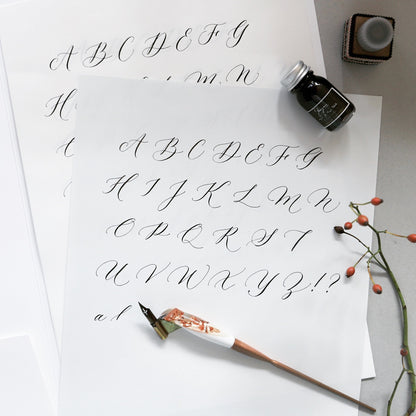 A B C D E F G
H
M N
A B C D E F G
H I J K L M N
O P Q R S T
U V W X Y Z ! ?
a